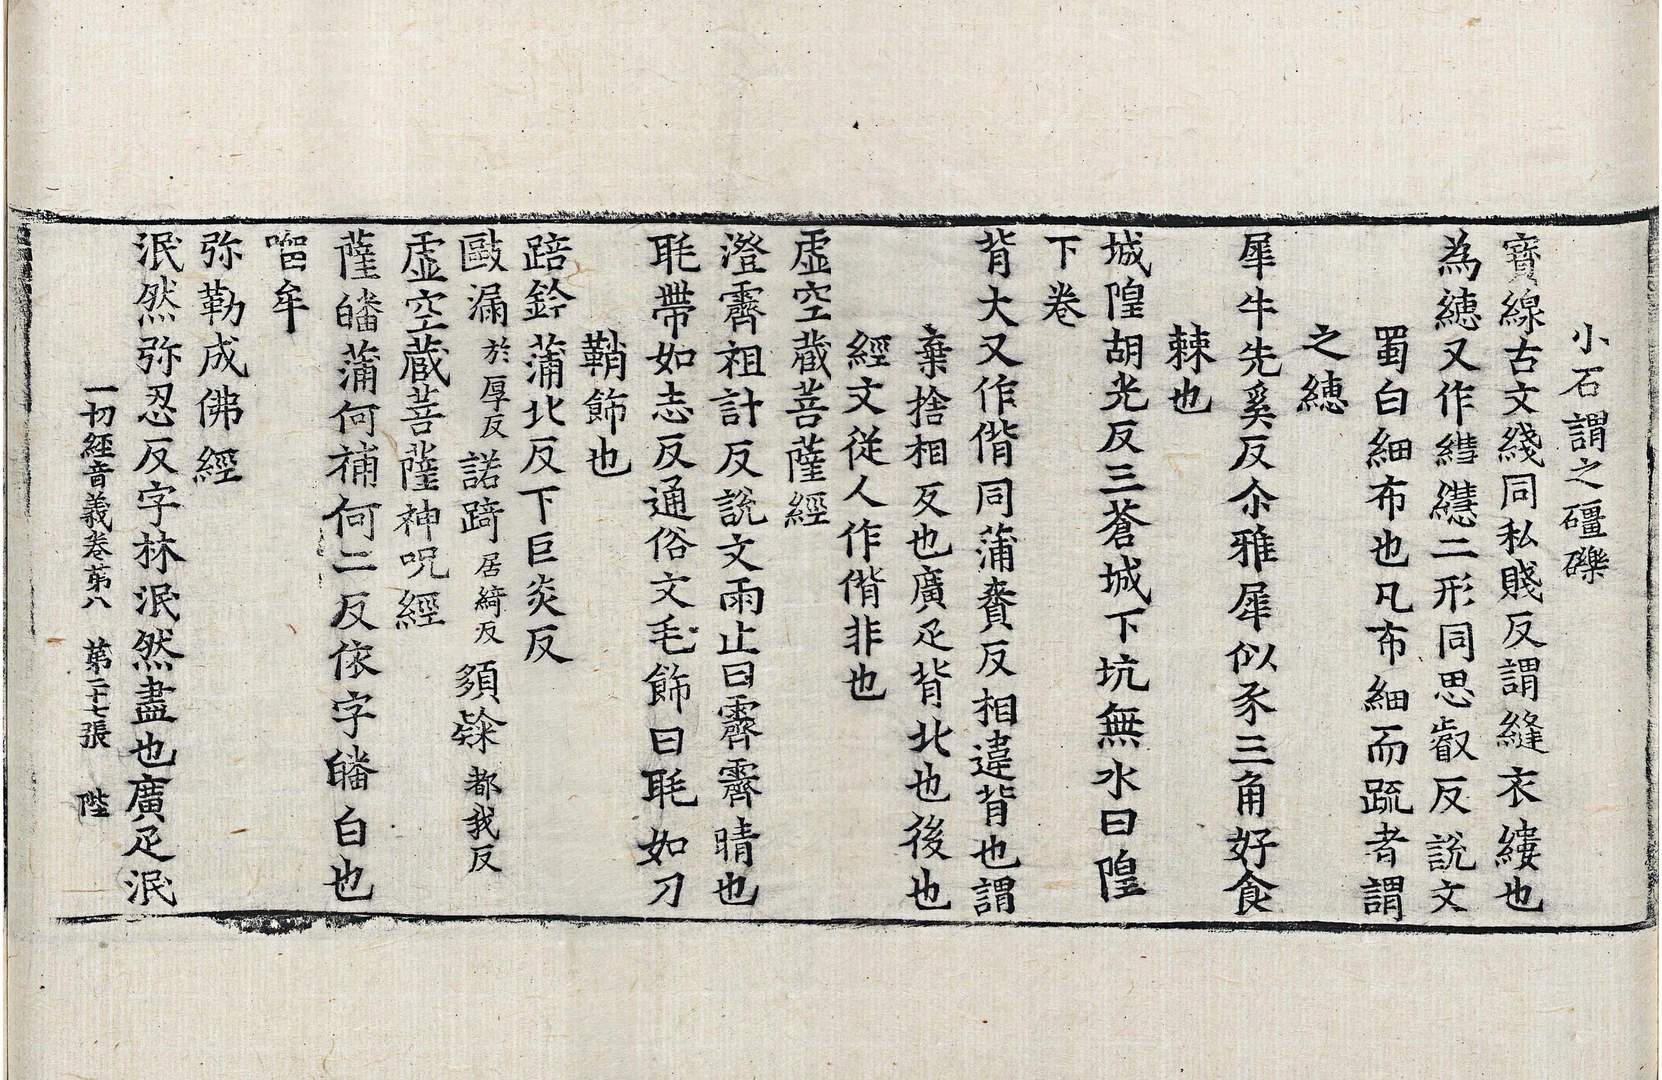 小石謂之礓礫
寳線古文綫同私賤反謂縫衣縷也
為繐又作𦅻繱二形同思叡反説文
蜀白細布也凡布細而疏者謂
之繐
犀牛先奚反尒雅犀似豕三角好食
棘也
城隍胡光反三蒼城下坑無水曰隍
下卷
背大又作偝同蒲賚反相違背也謂
棄捨相反也廣疋背北也後也
經文従人作偝非也
虚空藏菩薩經
澄霽祖計反説文雨止曰霽霽晴也
毦帶如志反通俗文毛飾曰毦如刀
鞘飾也
踣鈐蒲北反下巨炎反
敺漏於厚反 諾踦居綺反 須都我反
虚空藏菩薩神呪經
薩皤蒲何補何二反依字皤白也
㗧牟
弥勒成佛經
泯然弥忍反字林泯然盡也廣疋泯
一切經音義卷苐八 第二十七張 陛